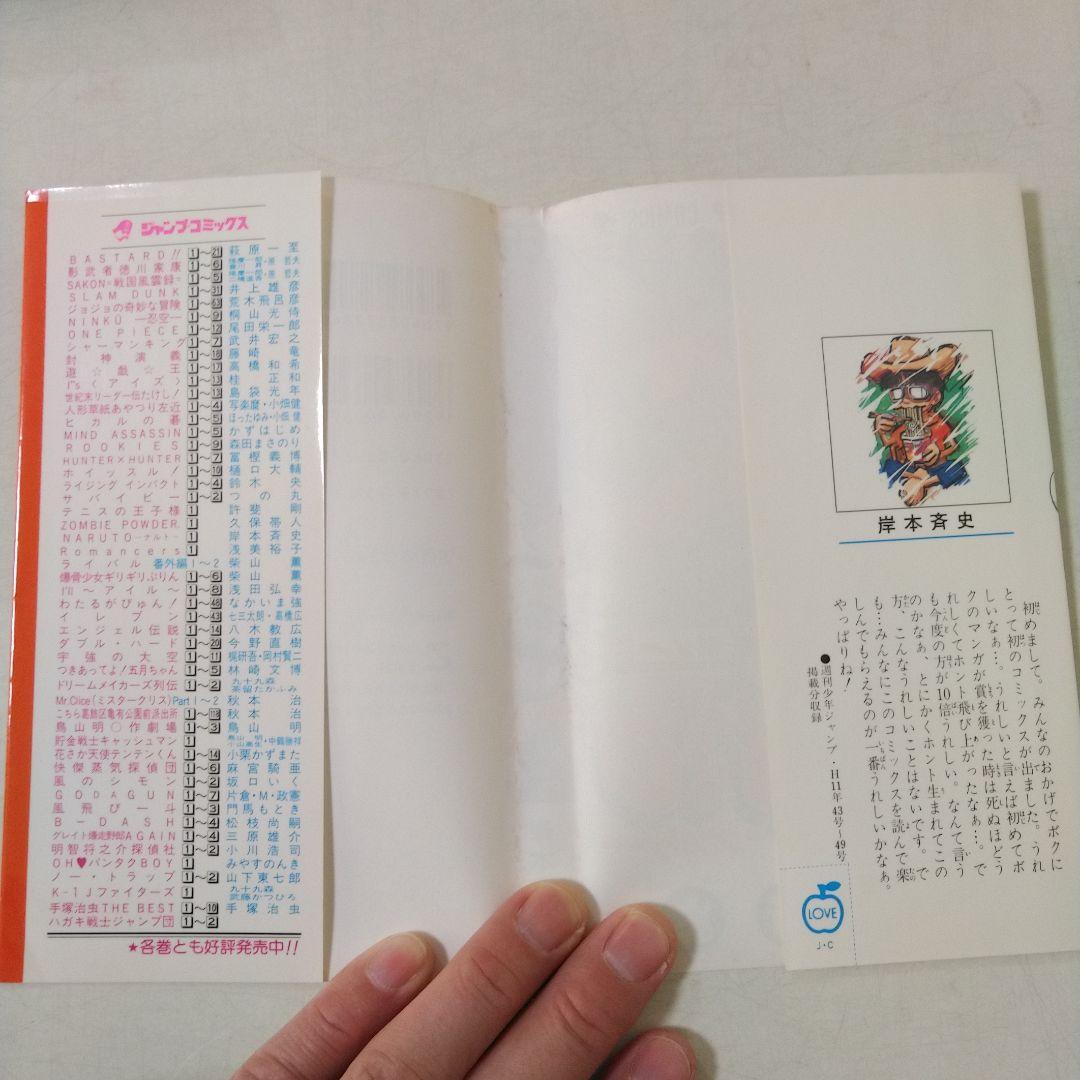 ジャンプ・コミックス
BASTARD!! 1～21 萩原一至
影武者徳川家康 1～6 原 哲夫
SAKON=戦国風雲録= 1～5 原 哲夫
SLAM DUNK 1～31 井上雄彦
ジョジョの奇妙な冒険 1～63 荒木飛呂彦
NINKŪ ―忍空― 1～9 桐山光侍
ONE PIECE 1～12 尾田栄一郎
シャーマンキング 1～7 武井宏之
封神演義 1～18 藤崎 竜
遊☆戯☆王 1～17 高橋和希
I"s〈アイズ〉 1～13 桂 正和
世紀末リーダー伝たけし! 1～13 島袋光年
人形草紙あやつり左近 1～4 写楽麿・小畑健
ヒカルの碁 1～5 ほったゆみ・小畑 健
MIND ASSASSIN 1～5 かずはじめ
ROOKIES 1～9 森田まさのり
HUNTER×HUNTER 1～7 冨樫義博
ホイッスル! 1～10 樋口大輔
ライジング インパクト 1～4 鈴木 央
サバイビー 1～2 つの丸
テニスの王子様 1 許斐 剛
ZOMBIE POWDER. 1 久保帯人
NARUTO―ナルト― 1 岸本斉史
Romancers 1 浅美裕子
ライバル 番外編 1～2 柴山 薫
爆骨少女ギリギリぷりん 1～6 柴山 薫
I'll～アイル～ 1～8 浅田弘幸
わたるがぴゅん! 1～48 なかいま強
イレブン 1～43 七三太朗・高橋広
エンジェル伝説 1～14 八木教広
ダブル・ハード 1～20 今野直樹
宇強の大空 1～11 梶研吾・岡村賢二
つきあってよ!五月ちゃん 1～5 林崎文博
ドリームメイカーズ列伝 1～2 九十九森 茶留たかふみ
Mr.Clice(ミスタークリス) Part 1～2 秋本 治
こちら葛飾区亀有公園前派出所 1～118 秋本 治
鳥山明○作劇場 1～3 鳥山 明
貯金戦士キャッシュマン 1 鳥山 明 小山高生・中鶴勝祥
花さか天使テンテンくん 1～14 小栗かずまた
快傑蒸気探偵団 1～6 麻宮騎亜
風のシモン 1～2 坂口いく
GODAGUN 1～7 片倉・M・政憲
風飛び一斗 1～3 門馬もとき
B-DASH 1～4 松枝尚嗣
グレイト爆走野郎AGAIN 1～4 三原雄介
明智将之介探偵社 1～2 小川浩司
OH♥バンタクBOY 1 みやすのんき
ノー・トラップ 1～2 山下東七郎
K-1Jファイターズ 1 九十九森 武藤かつひろ
手塚治虫THE BEST 1～10 手塚治虫
ハガキ戦士ジャンプ団 1～2
★各巻とも好評発売中!!
岸本斉史
初めまして。みんなのおかげでボクに
とって初のコミックスが出ました。うれ
しいなぁ…。うれしいと言えば初めてボ
クのマンガが賞を獲った時は死ぬほどう
れしくてホント飛び上がったなぁ…。で
も今度の方が10倍うれしい。なんて言う
のかなぁ、とにかくホント生まれてこの
方、こんなうれしいことはないです。で
も…みんなにこのコミックスを読んで楽
しんでもらえるのが一番うれしいかなぁ。
やっぱりね!
●週刊少年ジャンプ・H11年43号～49号
掲載分収録
LOVE
J・C